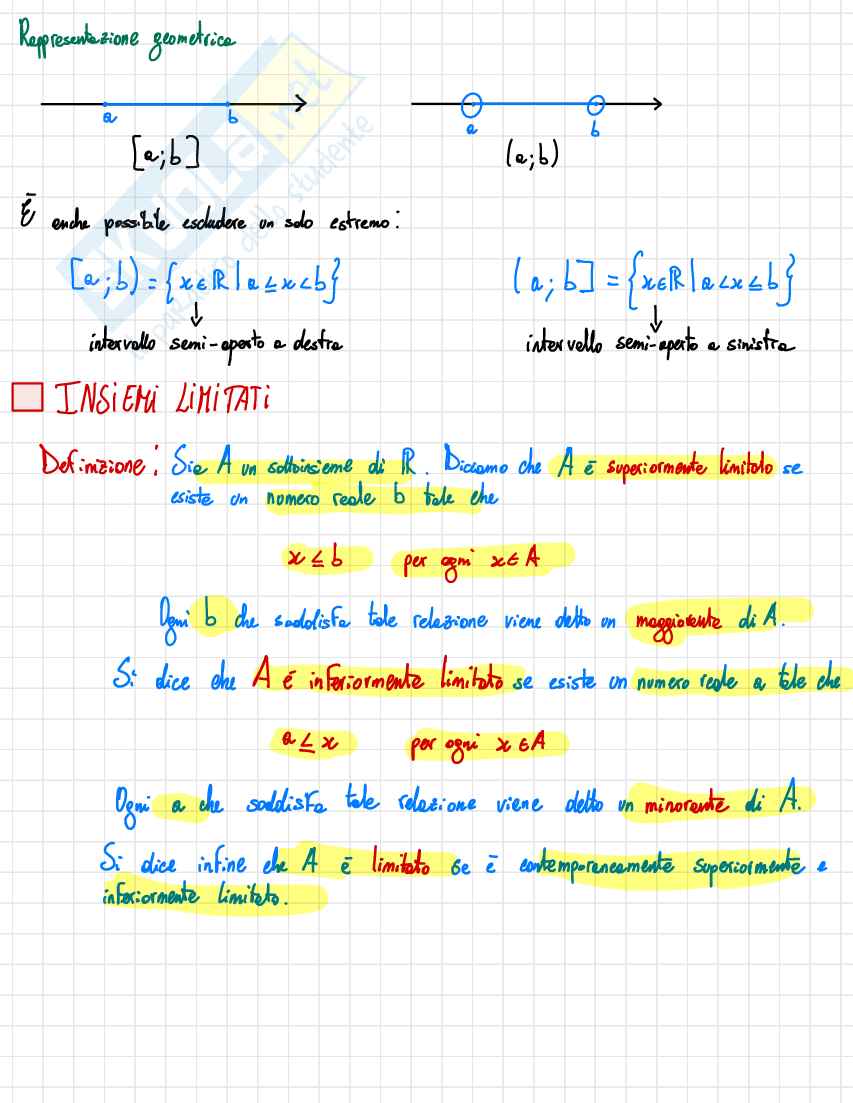 Rappresentazione geometrica
a b a b
[a;b] (a;b)
È anche possibile escludere un solo estremo:
[a;b) = {x∈ℝ | a≤x<b} (a;b] = {x∈ℝ | a<x≤b}
intervallo semi-aperto a destra intervallo semi-aperto a sinistra
INSIEMI LIMITATI
Definizione: Sia A un sottoinsieme di ℝ. Diciamo che A è superiormente limitato se
esiste un numero reale b tale che
x ≤ b per ogni x∈A
Ogni b che soddisfa tale relazione viene detto un maggiorante di A.
Si dice che A è inferiormente limitato se esiste un numero reale a tale che
a ≤ x per ogni x∈A
Ogni a che soddisfa tale relazione viene detto un minorante di A.
Si dice infine che A è limitato se è contemporaneamente superiormente e
inferiormente limitato.
SKUOLA.net